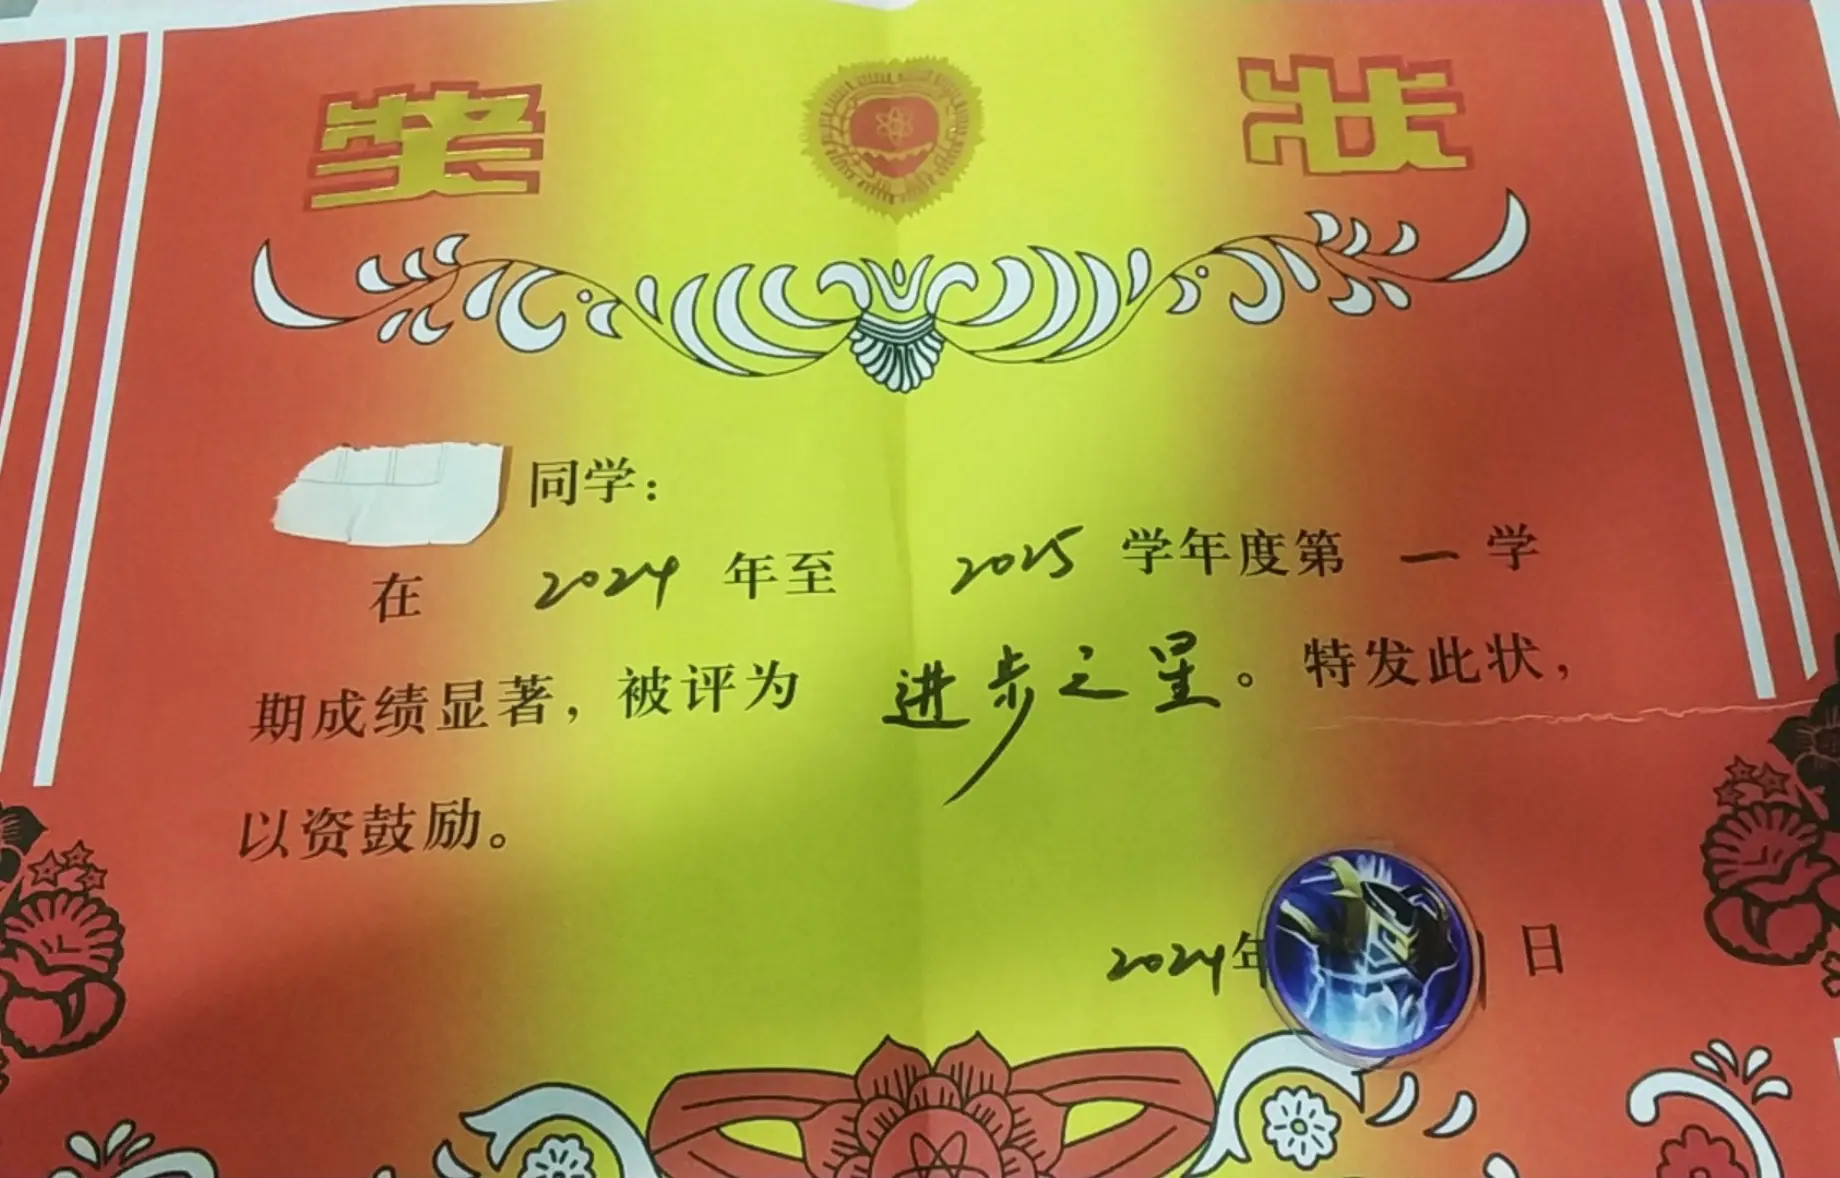 奖 状
同学：
在 2024 年至 2025 学年度第 一 学
期成绩显著，被评为 进步之星。特发此状，
以资鼓励。
2024年 日